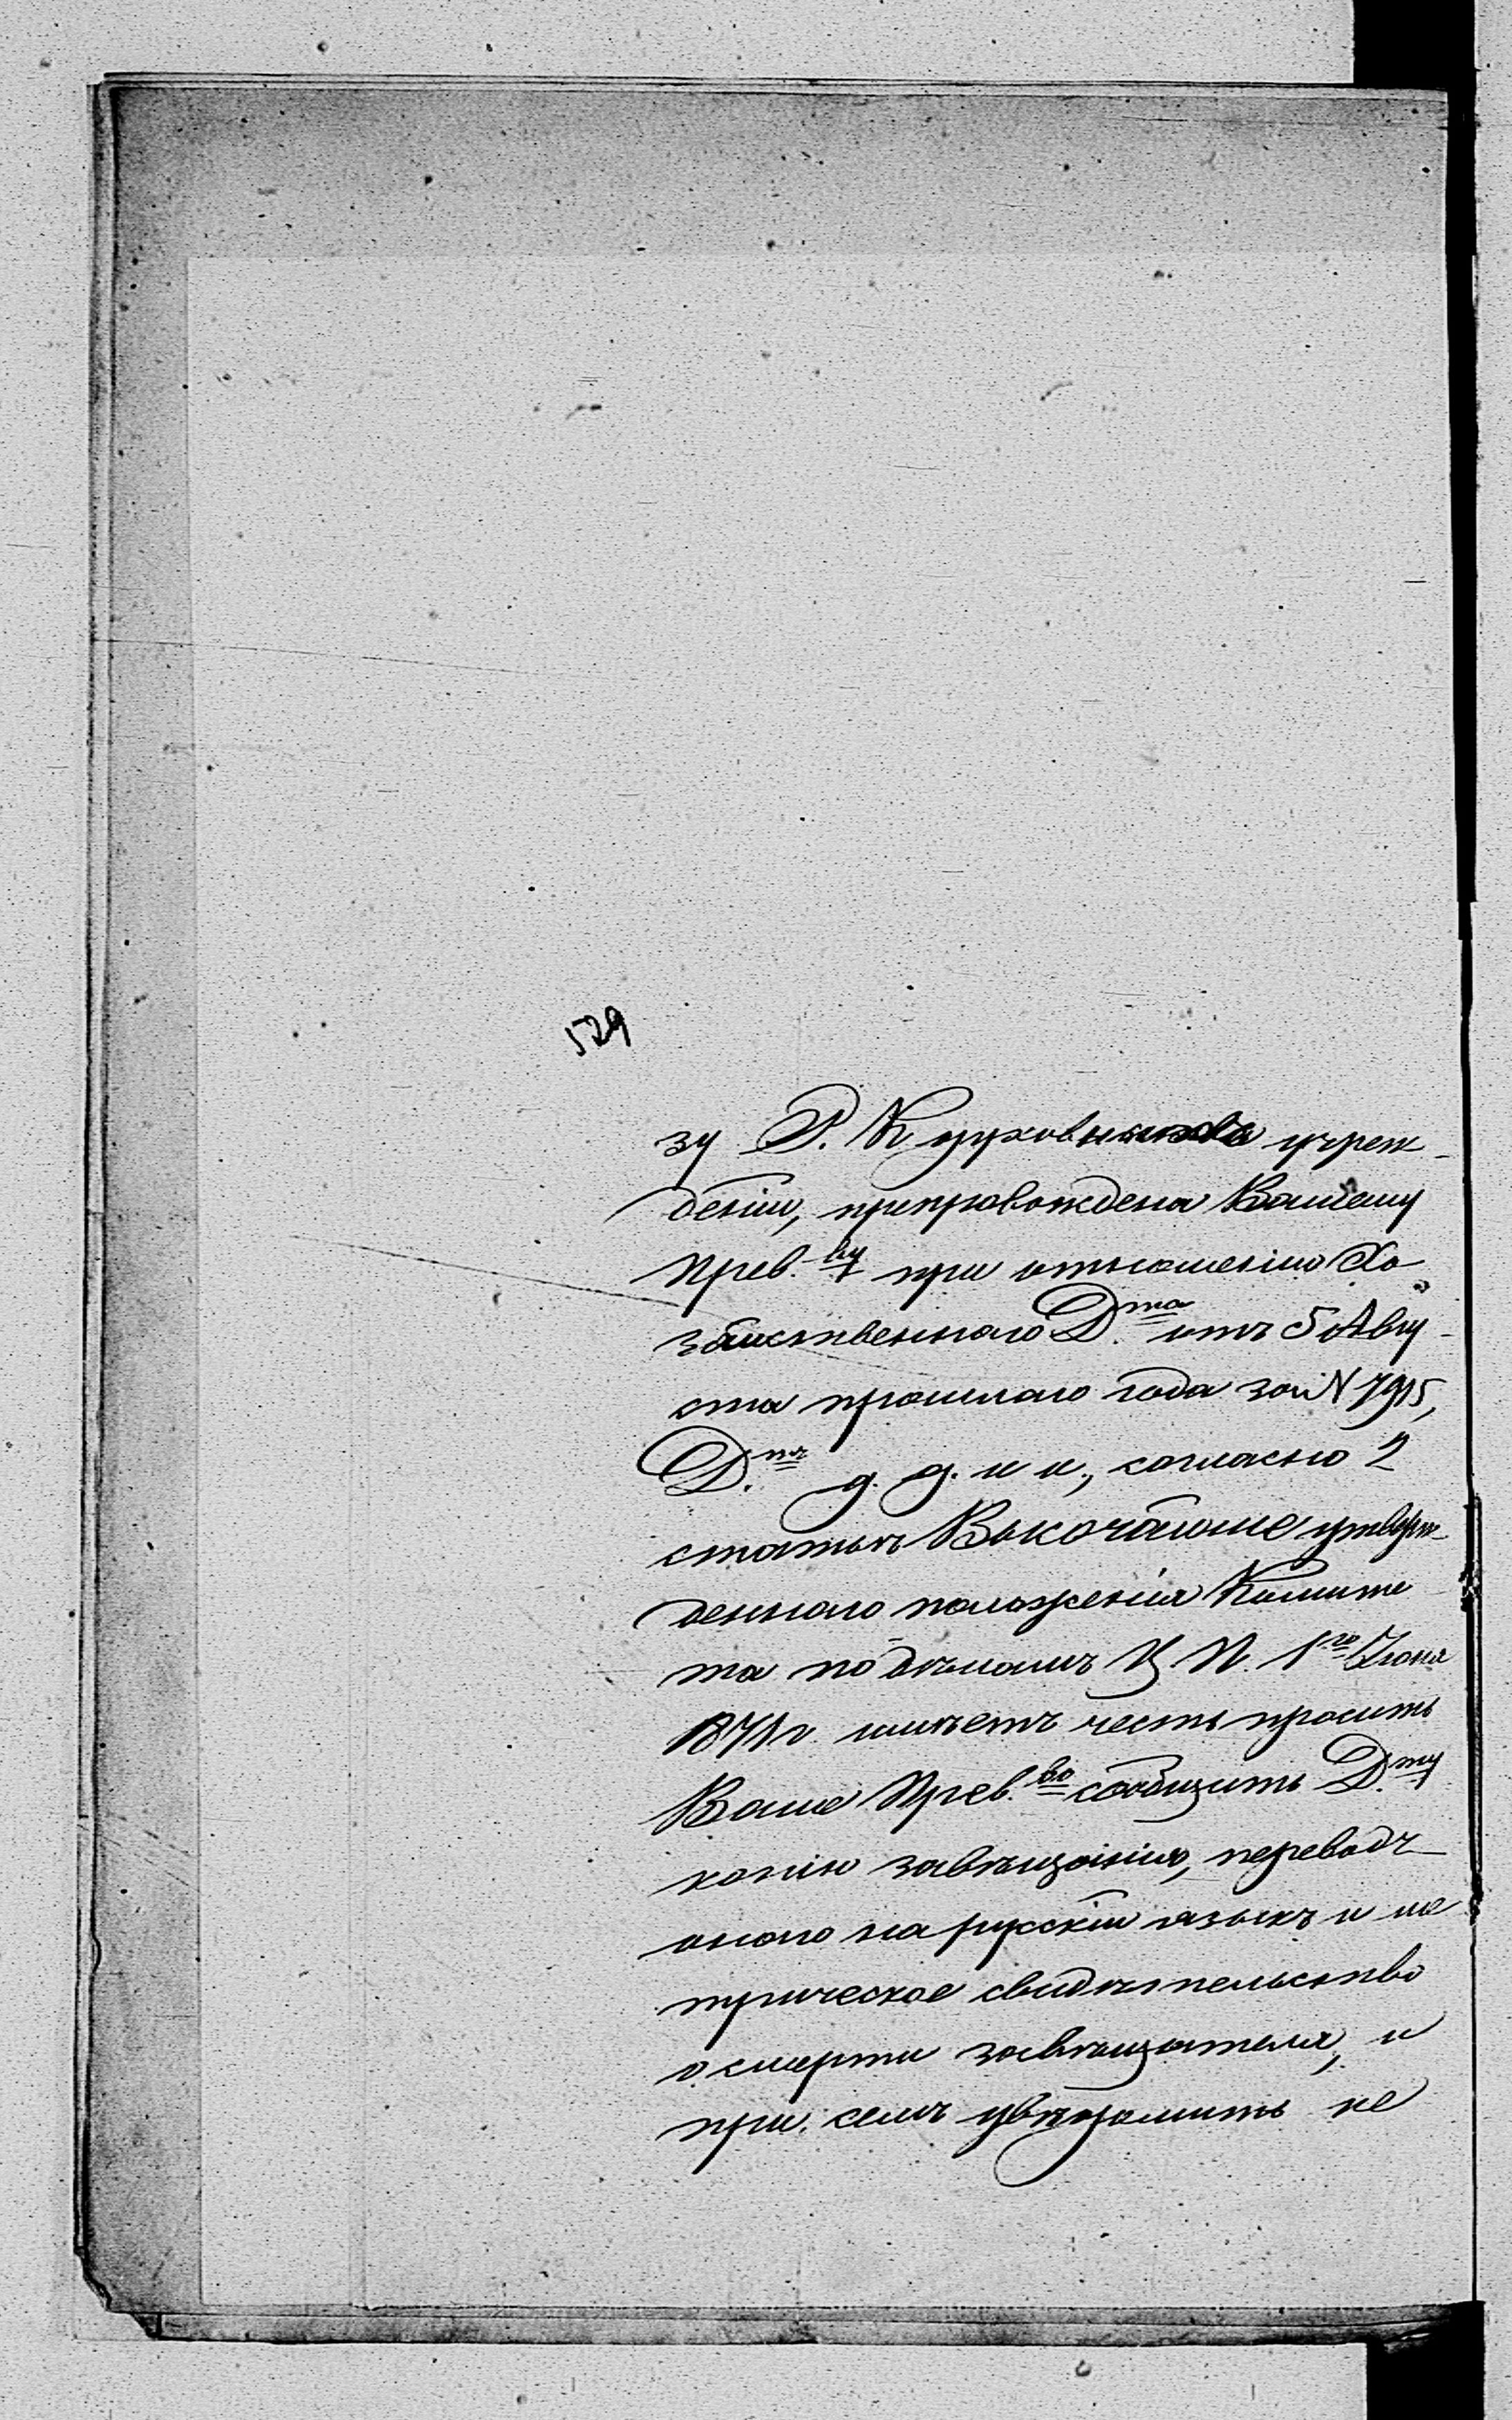 529
зу Р. К духовныхъ учреж-
деній, препровождена Вашему
Прев.ву при отношеніи Хо-
зяйственнаго Д.та отъ 5 Авгу-
ста прошлаго года за N 7915,
Д.тъ д. д. и и., согласно 2
статьѣ Высочайше утверж-
деннаго положенія Комите-
та по дѣламъ Ц. П. 1го Іюня
1871 г. имѣетъ честь просить
Ваше Прев.во сообщить Д.ту
копію завѣщанія, переводъ
онаго на русскій языкъ и ме-
трическое свидѣтельство
о смерти завѣщателя, и
при семъ увѣдомить не